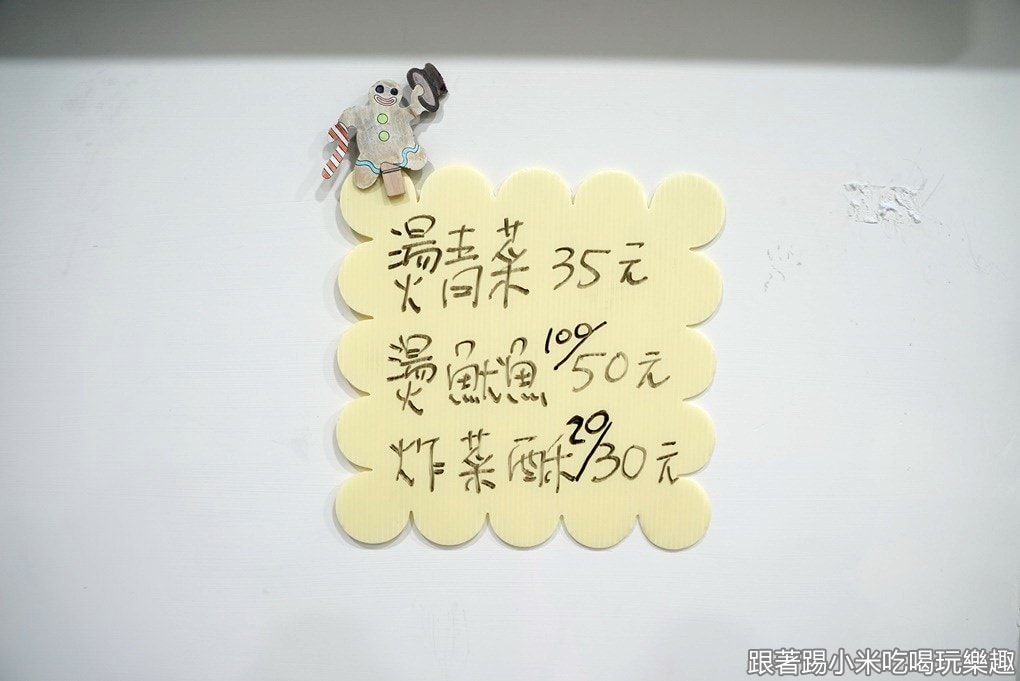 燙青菜 35元
燙魷漁 100/50元
炸菜酥 20/30元
跟著踢小米吃喝玩樂趣